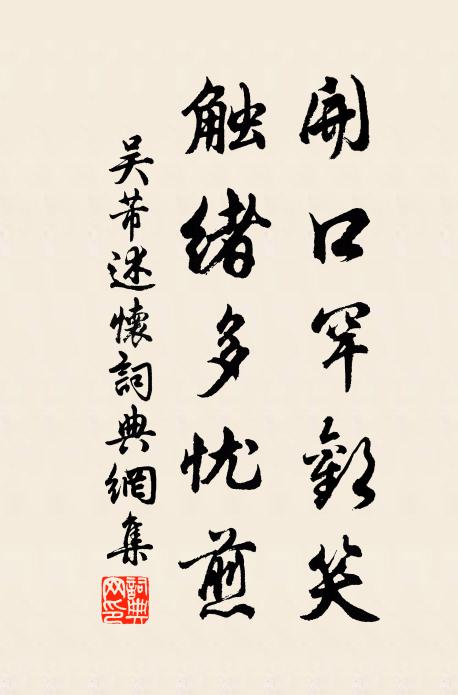 開口罕歡笑
触緒多忧煎
吴芾述懷詞典網集
詞典网印